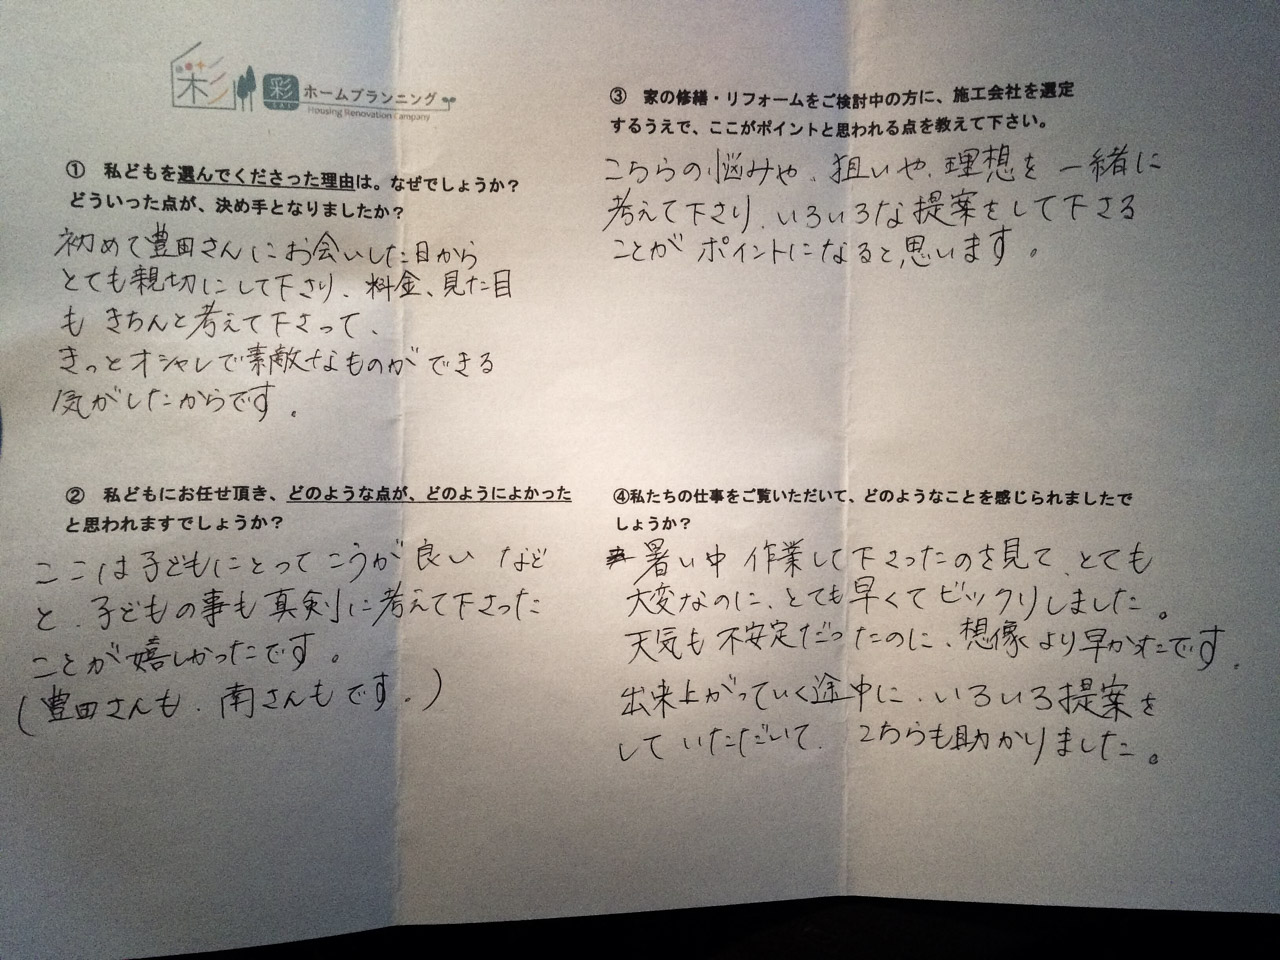 彩
彩
ホームプランニング
Housing Renovation Company
① 私どもを選んでくださった理由は。なぜでしょうか？
どういった点が、決め手となりましたか？
初めて豊田さんにお会いした日から
とても親切にして下さり、料金、見た目
も きちんと考えて下さって、
きっとオシャレで素敵なものができる
気がしたからです。
② 私どもにお任せ頂き、どのような点が、どのようによかった
と思われますでしょうか？
ここは子どもにとってこうが良い など
と、子どもの事も真剣に考えて下さった
ことが嬉しかったです。
(豊田さんも、南さんもです。)
③ 家の修繕・リフォームをご検討中の方に、施工会社を選定
するうえで、ここがポイントと思われる点を教えて下さい。
こちらの悩みや、狙いや、理想を一緒に
考えて下さり、いろいろな提案をして下さる
ことが ポイントになると思います。
④私たちの仕事をご覧いただいて、どのようなことを感じられましたで
しょうか？
暑い中 作業して下さったのを見て、とても
大変なのに、とても早くてビックリしました。
天気も不安定だったのに、想像より早かったです。
出来上がっていく途中に、いろいろ提案を
していただいて、こちらも助かりました。